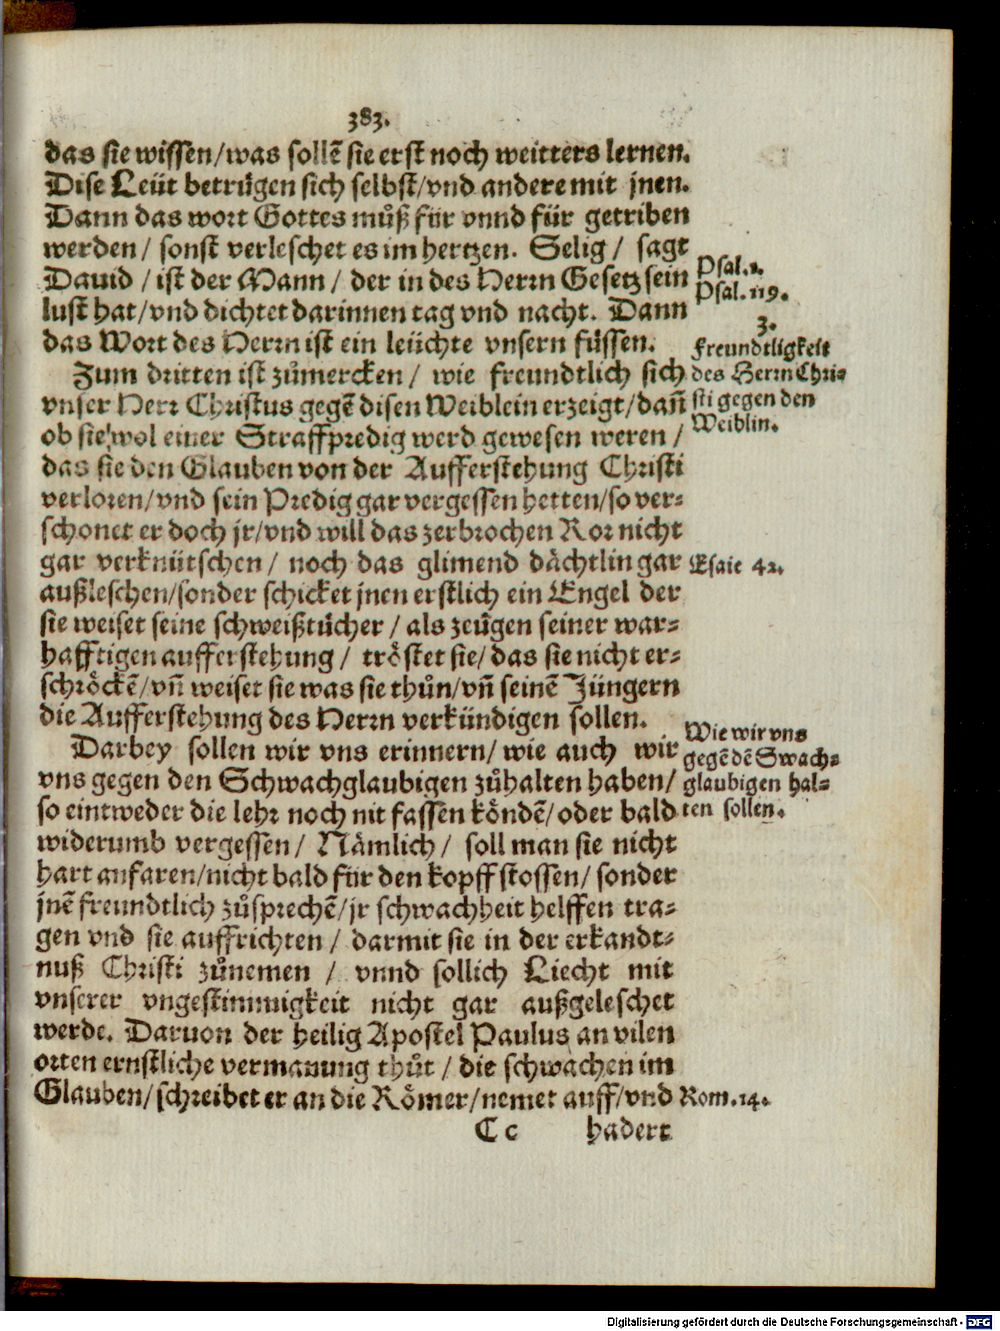 383.
das sie wissen/was sollẽ sie erst noch weitters lernen.
Dise Leüt betrůgen sich selbst/vnd andere mit jnen.
Dann das wort Gottes můß für vnnd für getriben
werden/ sonst verleschet es im hertzen. Selig/ sagt
Dauid / ist der Mann / der in des Herrn Gesetz sein
lust hat/vnd dichtet darinnen tag vnd nacht. Dann
das Wort des Herrn ist ein leüchte vnsern füssen.
Psal.1.
Psal.119.
Zum dritten ist zůmercken/ wie freundtlich sich
vnser Herr Christus gegẽ disen Weiblein erzeigt/dañ
ob sie wol einer Straffpredig werd gewesen weren /
das sie den Glauben von der Aufferstehung Christi
verloren/vnd sein Predig gar vergessen hetten/so ver-
schonet er doch jr/vnd will das zerbrochen Ror nicht
gar verknütschen/ noch das glimend dächtlin gar
außleschen/sonder schicket jnen erstlich ein Engel der
sie weiset seine schweißtücher / als zeügen seiner war-
hafftigen aufferstehung/ tröstet sie/ das sie nicht er-
schröckẽ/vñ weiset sie was sie thůn/vñ seinẽ Jüngern
die Aufferstehung des Herrn verkündigen sollen.
3.
Freundtligkeit
des Herrn Chri-
sti gegen den
Weiblin.
Esaie 42.
Darbey sollen wir vns erinnern/ wie auch wir
vns gegen den Schwachglaubigen zůhalten haben/
so eintweder die lehr noch nit fassen köndẽ/oder bald
widerumb vergessen/ Nämlich/ soll man sie nicht
hart anfaren/nicht bald für den kopff stossen/ sonder
jnẽ freundtlich zůsprechẽ/jr schwachheit helffen tra-
gen vnd sie auffrichten/ darmit sie in der erkandt-
nuß Christi zůnemen / vnnd sollich Liecht mit
vnserer vngestimmigkeit nicht gar außgeleschet
werde. Daruon der heilig Apostel Paulus an vilen
orten ernstliche vermanung thůt / die schwachen im
Glauben/schreibet er an die Römer/nemet auff/vnd
Wie wir vns
gegẽ dẽ Swach-
glaubigen hal-
ten sollen.
Rom.14.
C c hadert
Digitalisierung gefördert durch die Deutsche Forschungsgemeinschaft - DFG